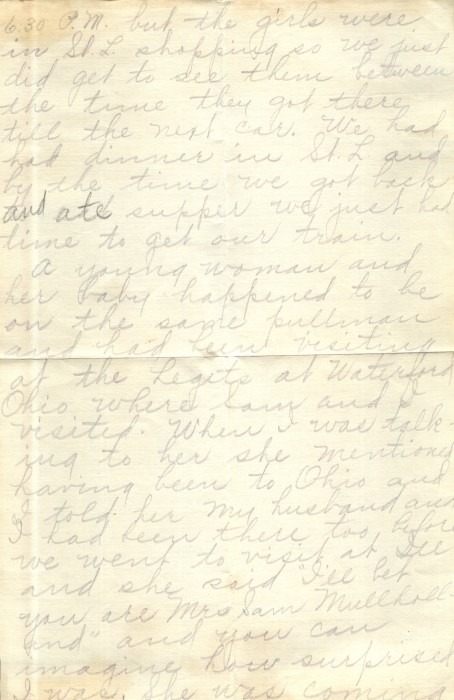 6.30 P.M. but the girls were
in St. L. shopping so we just
did get to see them between
the time they got there
till the next car. We had
had dinner in St. L. and
by the time we got back
and ate supper we just had
time to get our train.
A young woman and
her baby happened to be
on the same pullman
and had been visiting
at the Legits at Waterford
Ohio where Sam and I
visited. When I was talk-
ing to her she mentioned
having been to Ohio and
I told her my husband and
I had been there too before
we went to visit at
and she said "I'll bet
you are Mrs Sam Mullholl-
and" and you can
imagine how surprised
I was. She was coming